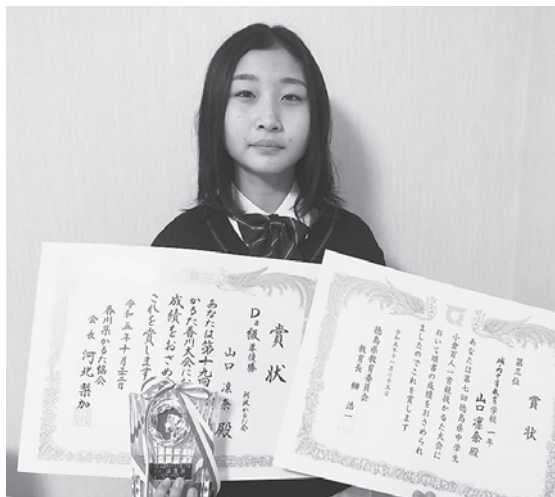 賞状
D₂級準優勝
阿波かるた会
山口凛奈殿
あなたは第十九回
かるた香川大会に
成績をおさめ
これを賞します
令和五年十月二十二日
香川県かるた協会
会長 河北梨加
賞状
第三位
城内中等教育学校 一年
山口凛奈殿
あなたは第七回徳島県中学生
小倉百人一首競技かるた大会に
おいて頭書の成績をおさめられ
ましたのでこれを賞します
徳島県教育委員会
教育長 榊浩一